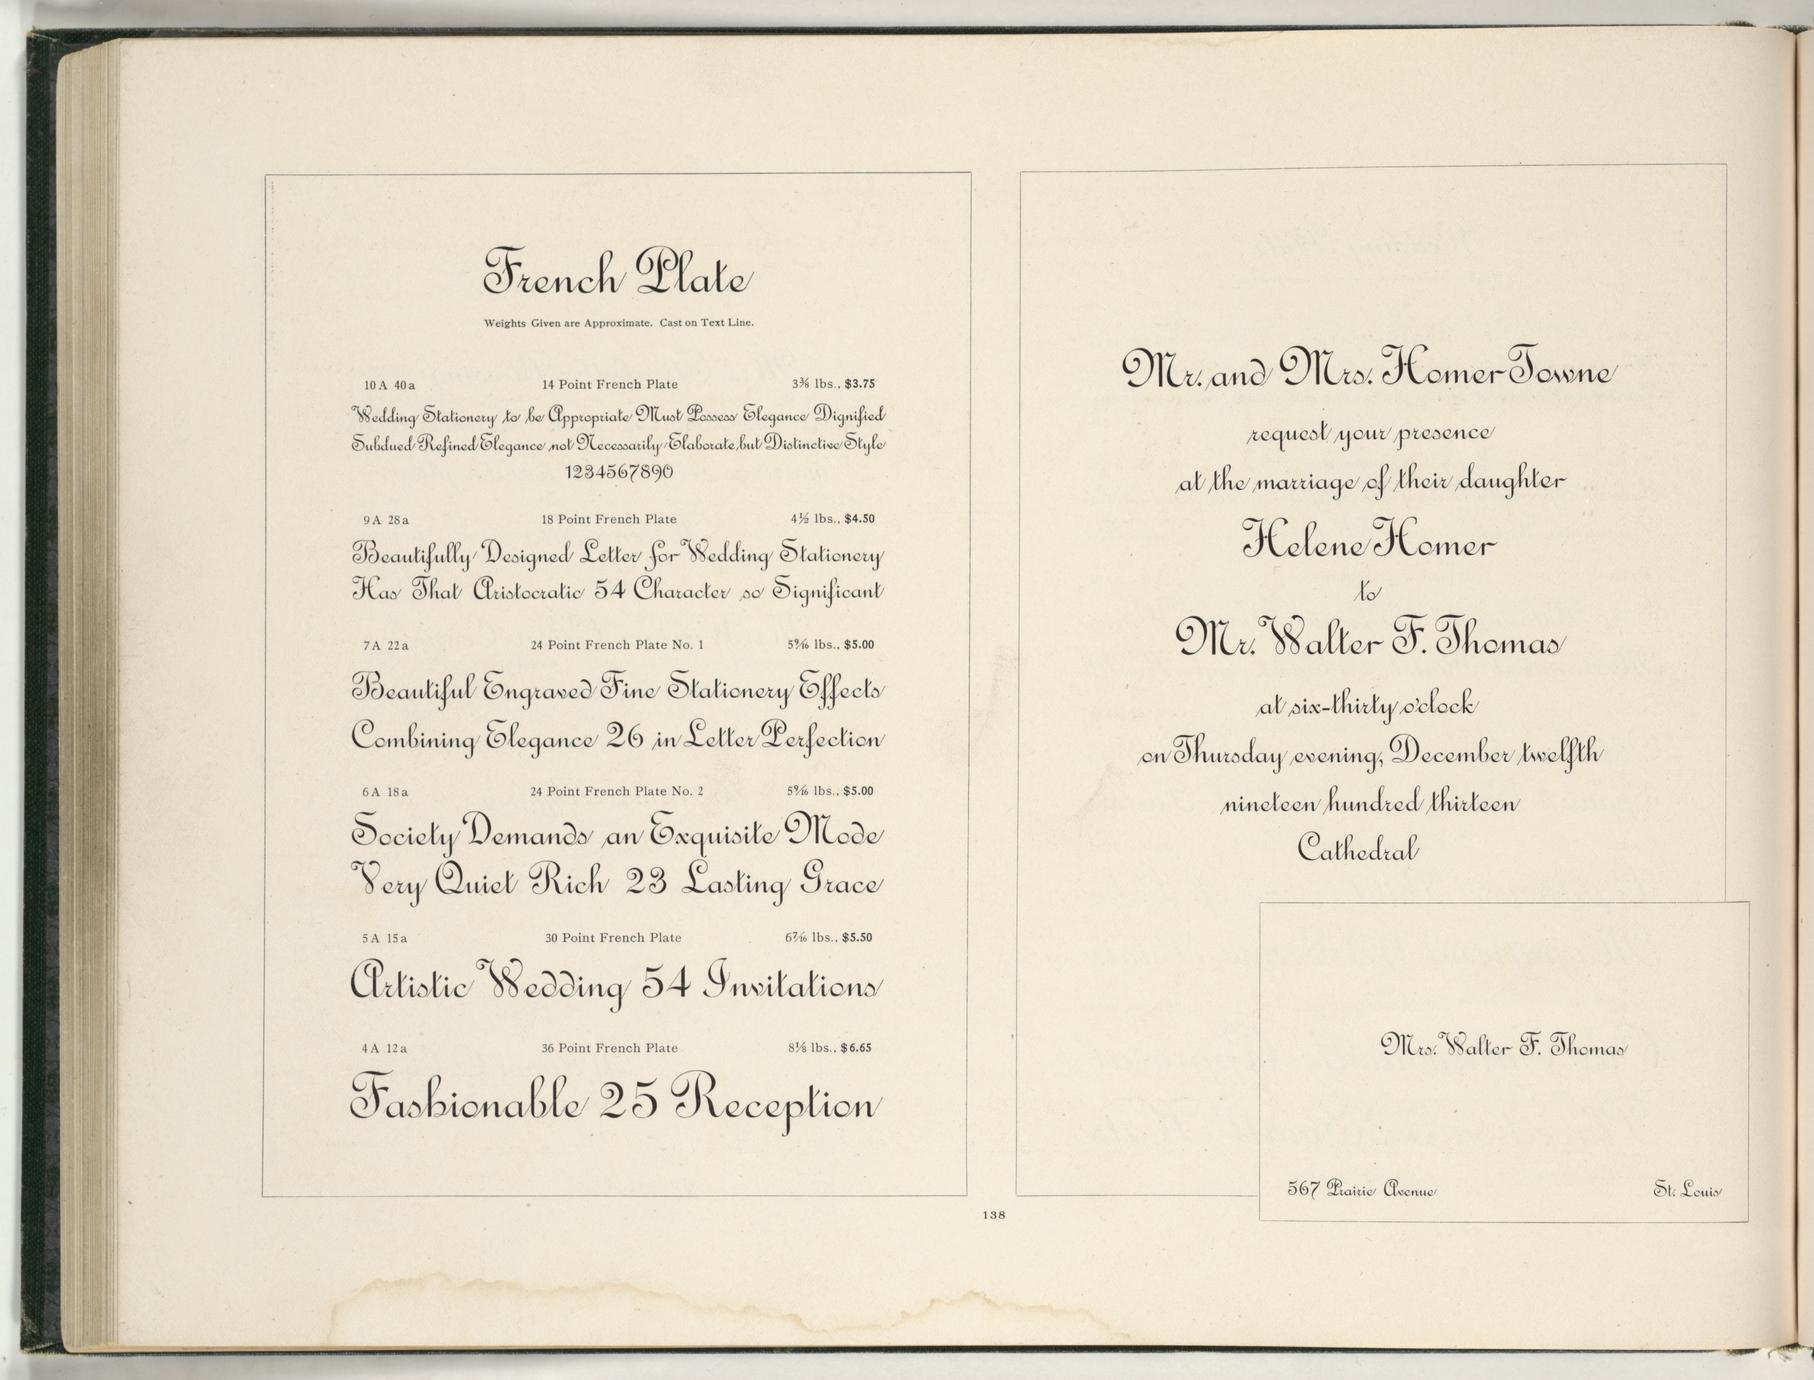 French Plate
Weights Given are Approximate. Cast on Text Line.
10 A 40 a 14 Point French Plate 3⅜ lbs., $3.75
Wedding Stationery to be Appropriate Must Possess Elegance Dignified
Subdued Refined Elegance not Necessarily Elaborate, but Distinctive Style
1234567890
9 A 28 a 18 Point French Plate 4½ lbs., $4.50
Beautifully Designed Letter for Wedding Stationery
Has That Aristocratic 54 Character so Significant
7 A 22 a 24 Point French Plate No. 1 5 9/16 lbs., $5.00
Beautiful Engraved Fine Stationery Effects
Combining Elegance 26 in Letter Perfection
6 A 18 a 24 Point French Plate No. 2 5 9/16 lbs., $5.00
Society Demands an Exquisite Mode
Very Quiet Rich 23 Lasting Grace
5 A 15 a 30 Point French Plate 6 7/16 lbs., $5.50
Artistic Wedding 54 Invitations
4 A 12 a 36 Point French Plate 8⅛ lbs., $6.65
Fashionable 25 Reception
Mr. and Mrs. Homer Towne
request your presence
at the marriage of their daughter
Helene Homer
to
Mr. Walter F. Thomas
at six-thirty o'clock
on Thursday evening, December twelfth
nineteen hundred thirteen
Cathedral
Mrs. Walter F. Thomas
567 Prairie Avenue St. Louis
138